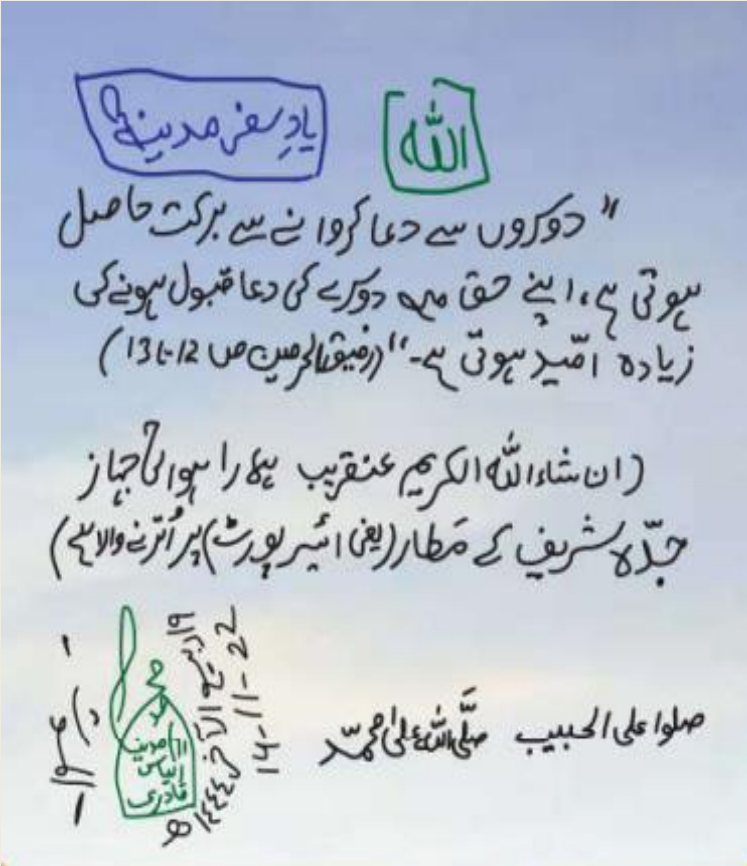 اللہ
یادِ سفرِ مدینہ
"دوسروں سے دعا کروانے سے برکت حاصل
ہوتی ہے، اپنے حق میں دوسرے کی دعا قبول ہونے کی
زیادہ امّید ہوتی ہے۔" (رفیق الحرمین ص 12 تا 13)
(ان شاء اللہ الکریم عنقریب ہمارا ہوائی جہاز
جدّہ شریف کے مَطار (یعنی ائیرپورٹ) پر اُترنے والا ہے)
صلوا علی الحبیب صلَّی اللہ علیٰ محمّد
۱۹ ربیع الآخر ۱۴۴۴ھ
14-11-22
محمد
الیاس
قادری